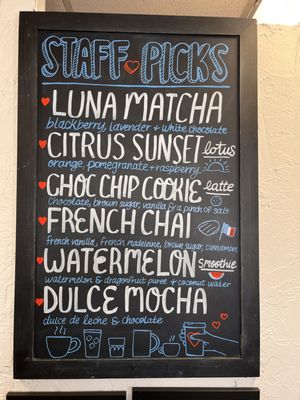 STAFF PICKS
LUNA MATCHA
blackberry, lavender + white chocolate
CITRUS SUNSET lotus
orange, pomegranate + raspberry
CHOC CHIP COOKIE latte
Chocolate, brown sugar, vanilla & a pinch of salt
FRENCH CHAI
french vanilla, french madeleine, brown sugar, cinnamon
WATERMELON Smoothie
watermelon & dragonfruit puree + coconut water
DULCE MOCHA
dulce de leche & chocolate